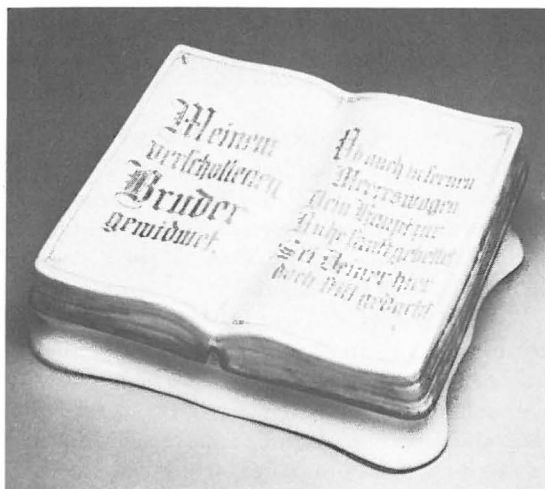 Meinem
verschollenen
Bruder
gewidmet.
Ob auch in fernen
Meereswogen
Dein Haupt zur
Ruhe sanft gebettet
Sei Deiner hier
doch still gedacht